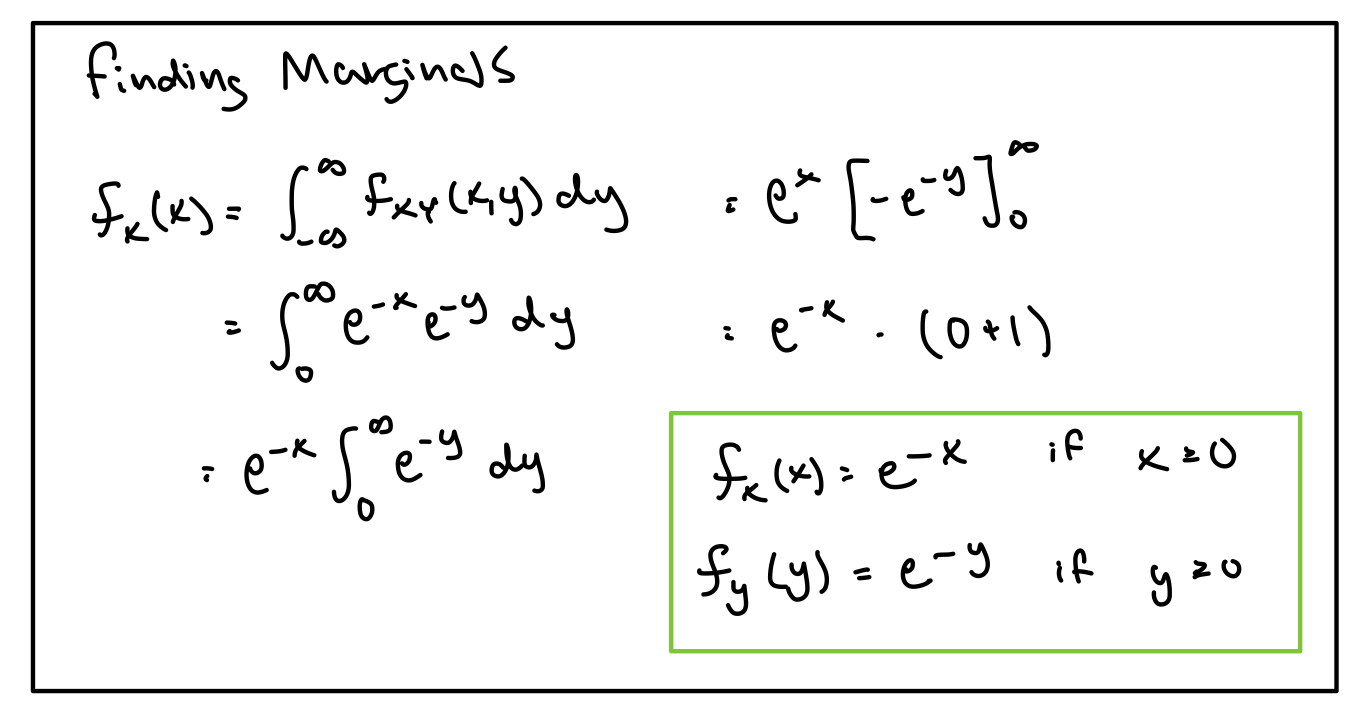 Finding Marginals
f_X(x) = ∫_{-∞}^{∞} f_{XY}(x,y) dy
= ∫_0^∞ e^{-x} e^{-y} dy
= e^{-x} ∫_0^∞ e^{-y} dy
= e^x [-e^{-y}]_0^∞
= e^{-x} · (0+1)
f_x(x) = e^{-x} if x ≥ 0
f_y(y) = e^{-y} if y ≥ 0